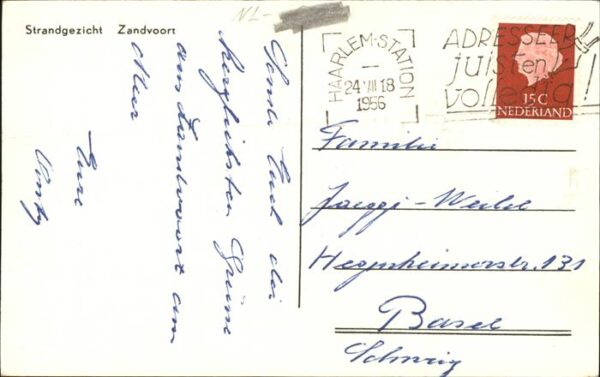 Strandgezicht Zandvoort
NL-
HAARLEM-STATION
24 VII 18
1956
ADRESSEER
juist en
volledig!
15 C
NEDERLAND
Sende Euch die
herzlichsten Grüsse
aus Zandvoort am
Meer
Eure
Familie
Jaeggi-Weibel
Hegenheimerstr. 131
Basel
Schweiz